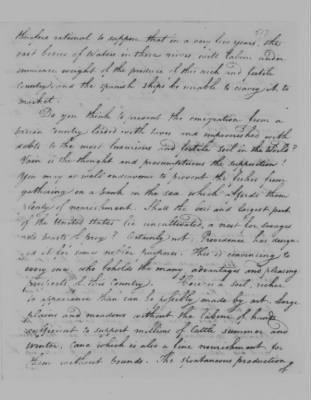 therefore rational to suppose that in a very few years, the
vast bodies of waters in those rivers will labour under
immense weight of the produce of this rich and fertile
Country, and the Spanish ships be unable to convey it to
market.
Do you think to prevent the emigration from a
barren Country loaded with taxes and impoverished with
debts to the most luxurious and fertile soil in the world?
Vain is the thought and presumptuous the supposition!
You may as well endeavour to prevent the fishes from
gathering on a bank in the sea which affords them
plenty of nourishment. Shall the best and largest part
of the United States be uncultivated, a nest for savages
and beasts of prey? Certainly not. Providence has design-
ed it for some nobler purposes. This is convincing to
every one who beholds the many advantages and pleasing
prospects of this Country. Here is a soil, richer
to appearance than can be possibly made by art. Large
plains and meadows without the labour of hands
sufficient to support millions of cattle summer and
winter; cane which is also a fine nourishment for
them without bounds. The spontaneous production
of